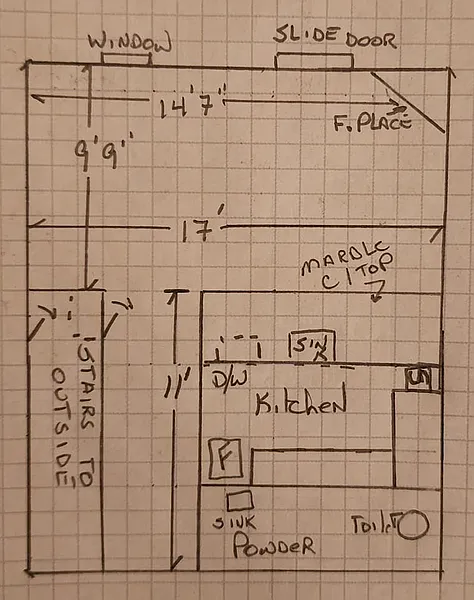 WINDOW
SLIDE DOOR
14'7"
F. PLACE
9'9"
17'
MARBLE
C/TOP
SINK
D/W
11'
STAIRS TO
OUTSIDE
Kitchen
F
SINK
TOILET
POWDER